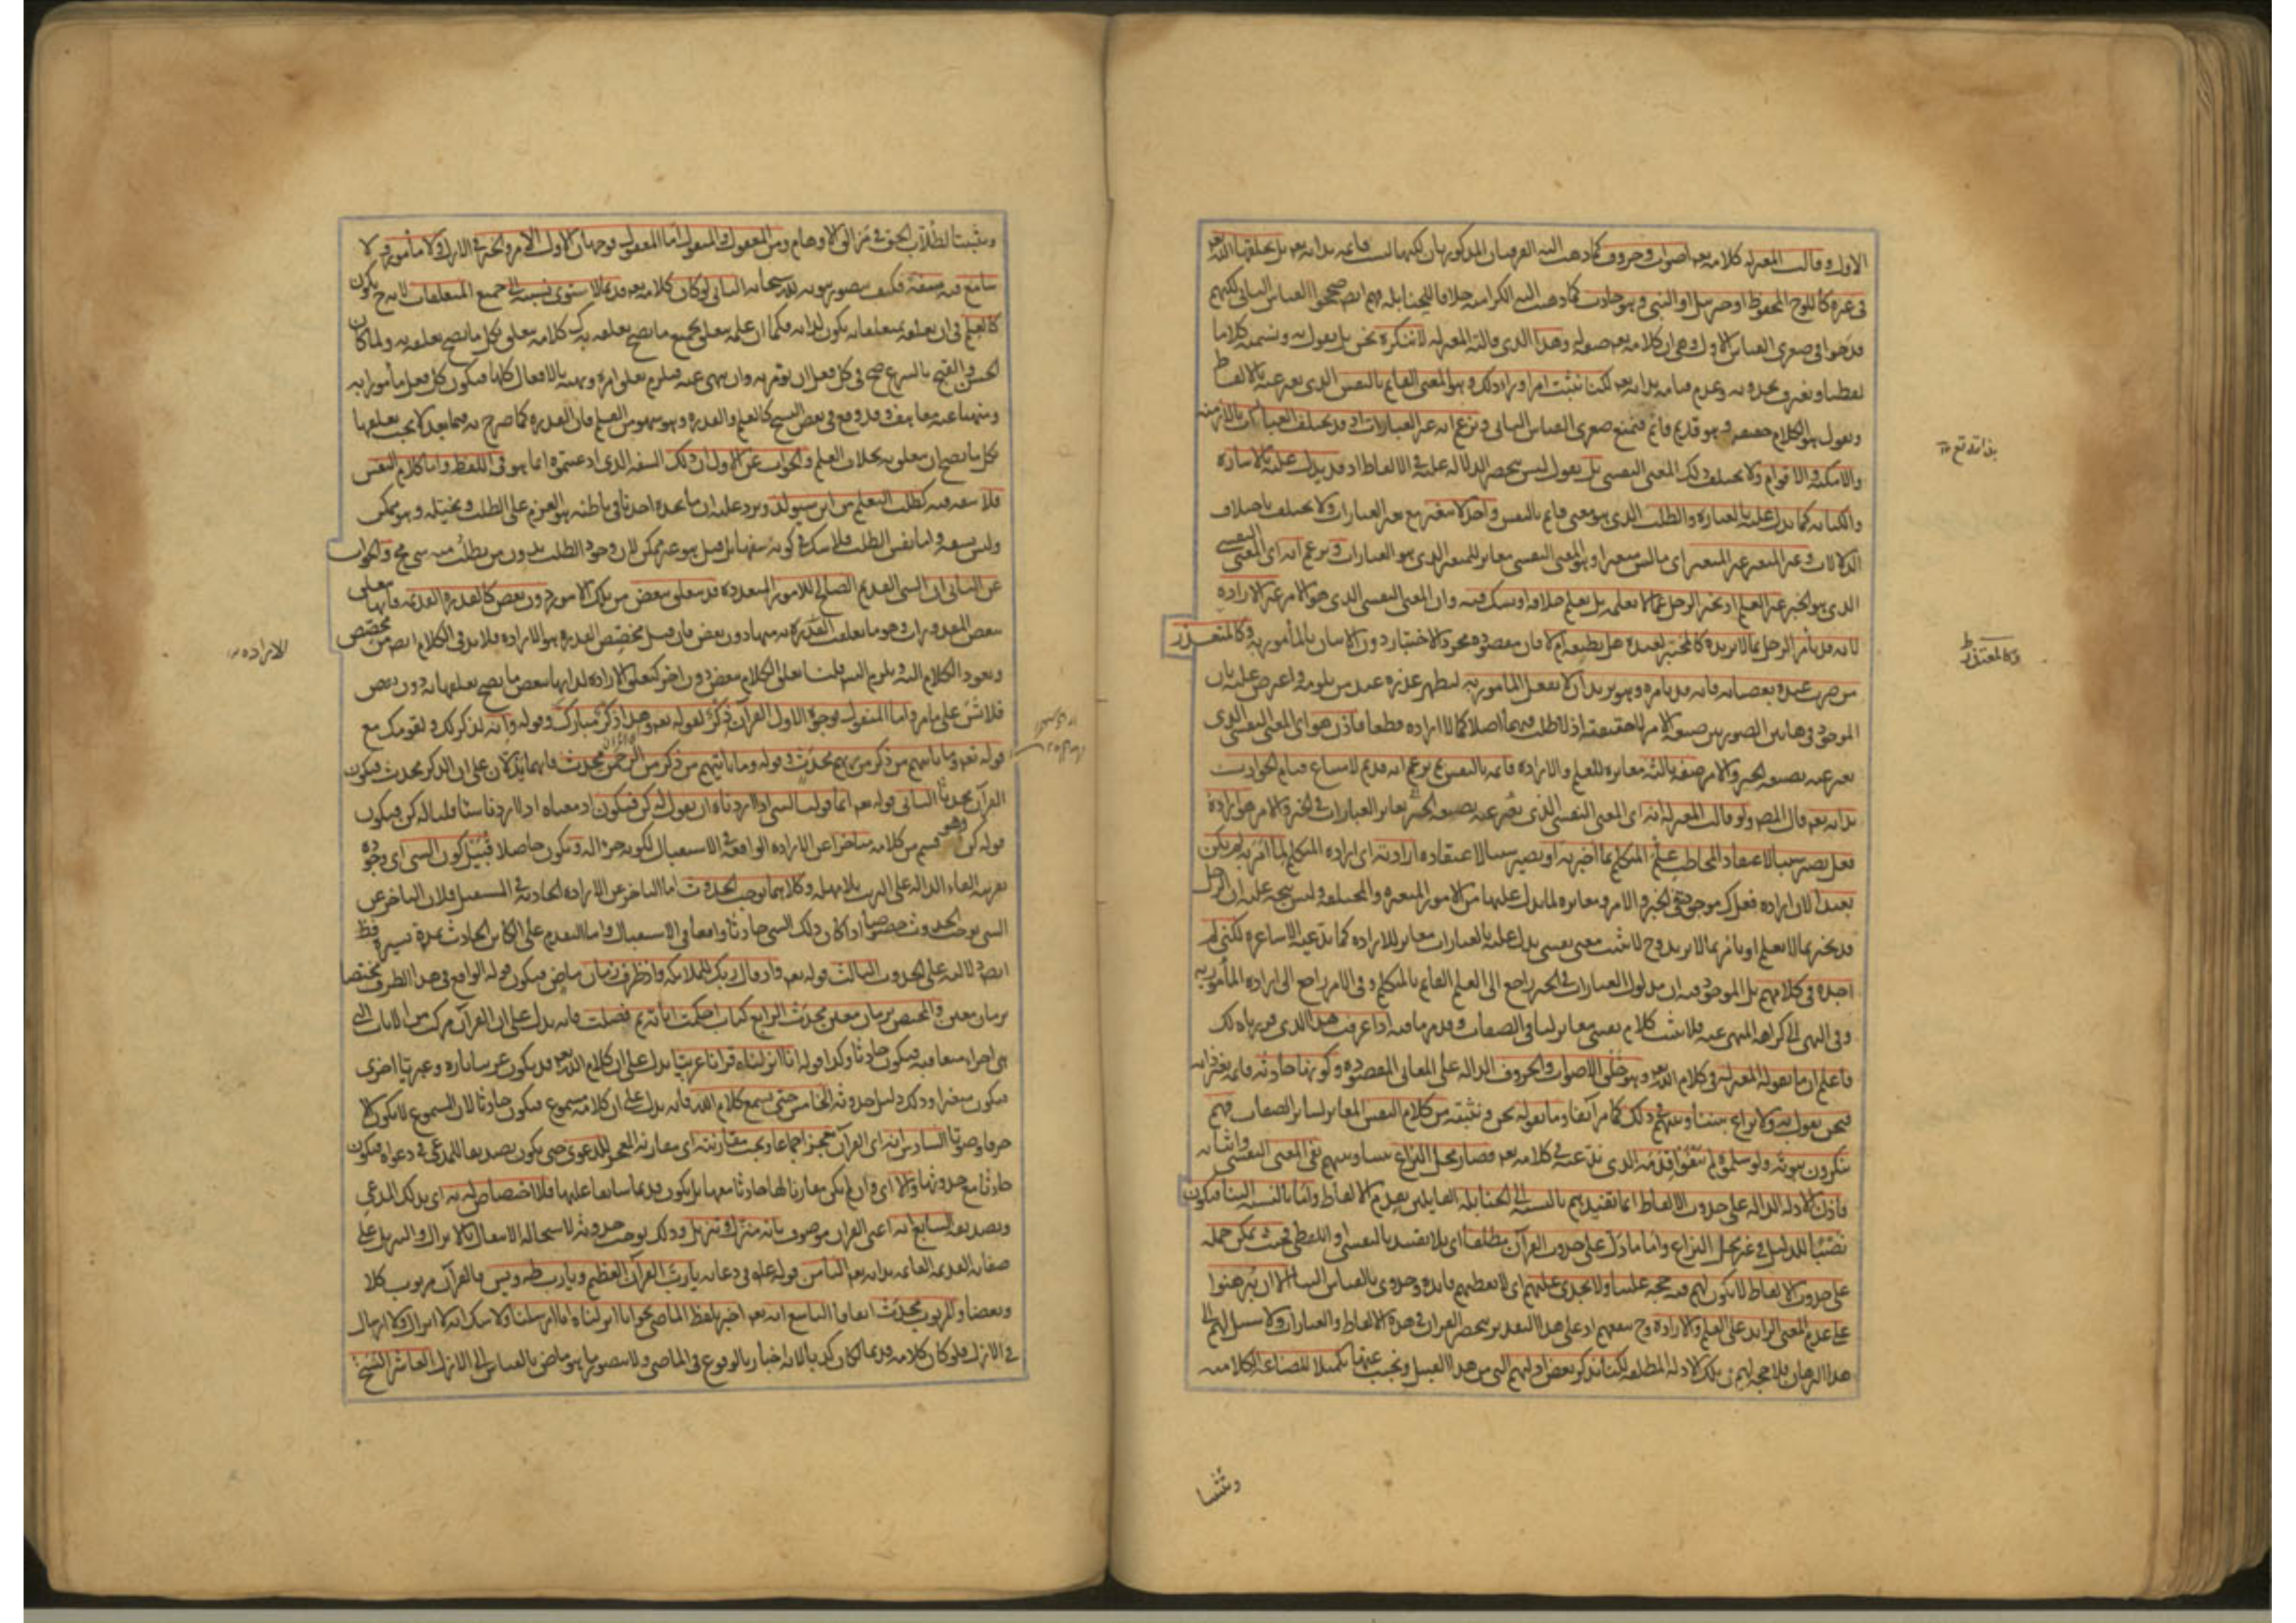 الاول وقالت المعتزلة كلامه تعه اصوات وحروف كما ذهب اليه الفرقتان المذكورتان لكنها ليست قائمة بذاته تعه بل يخلقها الله تعه
في غيره كاللوح المحفوظ او جبرئيل او النبي وهو حادث كما ذهب اليه الكرامية خلافا للحنابلة فهم ايضا صححوا القياس الثاني لكنهم
قدحوا في صغرى القياس الاول وهي ان كلامه تعه صفة له وهذا الذي قالته المعتزلة لا ننكره نحن بل نقول به ونسميه كلاما
لفظيا ونعترف بحدوثه وعدم قيامه بذاته تعه لكنا نثبت امرا وراء ذلك وهو المعنى القائم بالنفس الذي يعبر عنه بالالفاظ
ونقول هو الكلام حقيقة وهو قديم قائم فنمنع صغرى القياس الثاني ونزعم انه غير العبارات اذ قد تختلف العبارات بالازمنة
والامكنة والاقوام ولا يختلف ذلك المعنى النفسي بل نقول ليس ينحصر الدلالة عليه في الالفاظ اذ قد يدل عليه بالاشارة
والكتابة كما يدل عليه بالعبارة والطلب الذي هو معنى قائم بالنفس واحد لا يتغير مع تغير العبارات ولا يختلف باختلاف
الدلالات وغير المتغير غير المتغير اي ما ليس متغيرا وهو المعنى النفسي مغاير للمتغير الذي هو العبارات ونزعم انه اي المعنى النفسي
الذي هو الخبر غير العلم اذ يخبر الرجل عما لا يعلمه بل يعلم خلافه او يشك فيه وان المعنى النفسي الذي هو الامر غير الارادة
لانه قد يأمر الرجل بما لا يريده كالمختبر لعبده هل يطيعه ام لا فان مقصوده مجرد الاختبار دون الاتيان بالمأمور به وكالمعتذر
من ضرب عبده بعصيانه فانه قد يأمره وهو يريد ان لا يفعل المأمور به ليظهر عذره عند من يلومه واعترض عليه بان
الموجود في هاتين الصورتين صيغة الامر لا حقيقته اذ لا طلب فيهما اصلا كما لا ارادة قطعا فاذن هو اي المعنى النفسي الذي
يعبر عنه بصيغة الخبر والامر صفة ثالثة مغايرة للعلم والارادة قائمة بالنفس ثم نزعم انه قديم لامتناع قيام الحوادث
بذاته تعه قال المص ولو قالت المعتزلة انه اي المعنى النفسي الذي يعبر عنه بصيغة الخبر يغاير العبارات في الخبر والامر هو ارادة
فعل يصير سببا لاعتقاد المخاطب علم المتكلم بما اخبر به او يصير سببا لاعتقاده ارادته اي ارادة المتكلم لما امر به لم يكن
بعيدا لان ارادة فعل كذلك موجودة في الخبر والامر ومغايرة لما يدل عليها من الامور المتغيرة والمختلفة وليس يتجه عليه ان الرجل
قد يخبر بما لا يعلم او يأمر بما لا يريد وح لا يثبت معنى نفسي يدل عليه بالعبارات مغاير للارادة كما تدعيه الاشاعرة لكني لم
اجده في كلامهم بل الموجود فيه ان مدلول العبارات في الخبر راجع الى العلم القائم بالمتكلم وفي الامر راجع الى ارادة المأمور به
وفي النهي الى كراهة المنهي عنه فلا يثبت كلام نفسي مغاير لباقي الصفات وقد مر ما فيه اذا عرفت هذا الذي قررناه لك
فاعلم ان ما يقوله المعتزلة في كلام الله تعه وهو خلق الاصوات والحروف الدالة على المعاني المقصودة وكونها حادثة قائمة بغير ذاته
فنحن نقول به ولا نزاع بيننا وبينهم في ذلك كما مر آنفا وما نقوله نحن ونثبته من كلام النفس المغاير لسائر الصفات فهم
ينكرون ثبوته ولو سلموه لم ينفوا قدمه الذي ندعيه في كلامه تعه فصار محل النزاع بيننا وبينهم نفي المعنى النفسي واثباته
فاذن الادلة الدالة على حدوث الالفاظ انما تفيدهم بالنسبة الى الحنابلة القائلين بقدم الالفاظ واما بالنسبة الينا فيكون
نصبا للدليل في غير محل النزاع واما ما دل على حدوث القرآن مطلقا اي بلا تقييد بالنفسي او اللفظي فحيث يمكن حمله
على حدوث الالفاظ لا يكون لهم فيه حجة علينا ولا يجدي عليهم اي لا يعطيهم فائدة وجدوى بالقياس الينا الا ان يبرهنوا
على عدم المعنى الزائد على العلم والارادة وح ينفعهم اذ على هذا التقدير ينحصر القرآن في هذه الالفاظ والعبارات ولا سبيل لهم الى
هذا البرهان فلا حجة لهم في تلك الادلة المطلقة لكنا نذكر بعض ادلتهم التي من هذا القبيل ونجيب عنها تكميلا للصناعة الكلامية
وكالمعتذر
وتثبيتا
وتثبيتا لطلاب الحق في مزالق الاوهام ومن المعقول والمنقول اما المعقول فوجهان الاول الامر والخبر في الازل ولا مأمور ولا
سامع فيه سفه فكيف يتصور ثبوته لله سبحانه الثاني لو كان كلامه تعه قديما لاستوى نسبته الى جميع المتعلقات لانه ح يكون
كالعلم في ان تعلقه بمتعلقاته يكون لذاته فكما ان علمه يتعلق بجميع ما يصح تعلقه به كذلك كلامه يتعلق بكل ما يصح تعلقه به ولما كان
الحسن والقبح بالشرع صح في كل فعل ان يؤمر به وان ينهى عنه فيلزم تعلق امره ونهيه بالافعال كلها فيكون كل فعل مأمورا به
ومنهيا عنه معا هف وقد وقع في بعض النسخ كالعلم والقدرة وهو سهو من القلم فان القدرة كما صرح به فيما بعد لا يجب تعلقها
بكل ما يصح ان يتعلق به بخلاف العلم والجواب عن الاول ان ذلك السفه الذي ادعيتموه انما هو في اللفظ واما كلام النفس
فلا سفه فيه كطلب التعلم من ابن سيولد ويرد عليه ان ما يجده احدنا في باطنه هو العزم على الطلب وتخيله وهو ممكن
وليس بسفه واما نفس الطلب فلا شك في كونه سفها بل قيل هو غير ممكن لان وجود الطلب بدون من يطلب منه شي مح والجواب
عن الثاني ان الشي القديم الصالح للامور المتعددة قد يتعلق ببعض من تلك الامور دون بعض كالقدرة القديمة فانها تتعلق
ببعض المقدورات وهو ما تعلقت القدرة به منها دون بعض فان قيل مخصص القدرة هو الارادة فلا بد في الكلام ايض من مخصص
ويعود الكلام اليه ويلزم التس قلنا تعلق الكلام ببعض دون اخر كتعلق الارادة لذاتها ببعض ما يصح تعلقها به دون بعض
فلا تس على ما مر واما المنقول فوجوه الاول القرآن ذكر لقوله تعه وهذا ذكر مبارك وقوله وانه لذكر لك ولقومك مع
قوله تعه وما يأتيهم من ذكر من ربهم محدث وقوله وما يأتيهم من ذكر من الرحمن محدث فانهما يدلان على ان الذكر محدث فيكون
القرآن محدثا الثاني قوله تعه انما قولنا لشي اذا اردناه ان نقول له كن فيكون اذ معناه اذا اردنا شيئا قلنا له كن فيكون
قوله كن وهو قسم من كلامه متأخرا عن الارادة الواقعة في الاستقبال لكونه جزاء له ويكون حاصلا قبيل كون الشي اي وجوده
بقرينة الفاء الدالة على الترتيب بلا مهلة وكلاهما يوجب الحدوث اما التأخر عن الارادة الحادثة في المستقبل فلان التأخر عن
الشي يوجب الحدوث خصوصا اذا كان ذلك الشي حادثا واقعا في الاستقبال واما التقدم على الكائن الحادث بمدة يسيرة فظ
ايض دلالته على الحدوث الثالث قوله تعه واذ قال ربك للملائكة واذ ظرف زمان ماض فيكون قوله الواقع في هذا الظرف مختصا
بزمان معين والمختص بزمان معين محدث الرابع كتاب احكمت اياته ثم فصلت فانه يدل على ان القرآن مركب من الايات التي
هي اجزاء متعاقبة فيكون حادثا وكذا قوله انا انزلناه قرانا عربيا يدل على ان كلام الله تعه قد يكون عربيا تارة وعبريا اخرى
فيكون متغيرا وذلك دليل حدوثه الخامس حتى يسمع كلام الله فانه يدل على ان كلامه مسموع فيكون حادثا لان المسموع لا يكون الا
حرفا وصوتا السادس انه اي القرآن معجز اجماعا ويجب مقارنته اي مقارنة المعجز للدعوى حتى يكون تصديقا للمدعي في دعواه فيكون
حادثا مع حدوثها والا اي وان لم يكن مقارنا لها حادثا معها بل يكون قديما سابقا عليها فلا اختصاص له به اي بذلك المدعي
وتصديقه السابع انه اعني القرآن موصوف بانه منزل وتنزيل وذلك يوجب حدوثه لاستحالة الانتقال بالانزال والتنزيل على
صفاته القديمة القائمة بذاته تعه الثامن قوله عليه في دعائه يا رب القرآن العظيم ويا رب طه ويس فالقرآن مربوب كلا
وبعضا والمربوب محدث اتفاقا التاسع انه تعه اخبر بلفظ الماضي نحو انا انزلناه انا ارسلنا ولا شك انه لا انزال ولا ارسال
في الازل فلو كان كلامه قديما لكان كذبا لانه اخبار بالوقوع في الماضي ولا يتصور ما هو ماض بالقياس الى الازل العاشر النسخ
الارادة